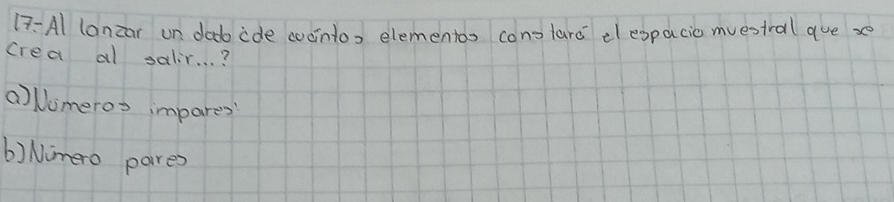 17.-Al lonzar un dado ¿de cuántos elementos constará el espacio muestral que se
crea al salir...?
a) Números impares'
b) Número pares